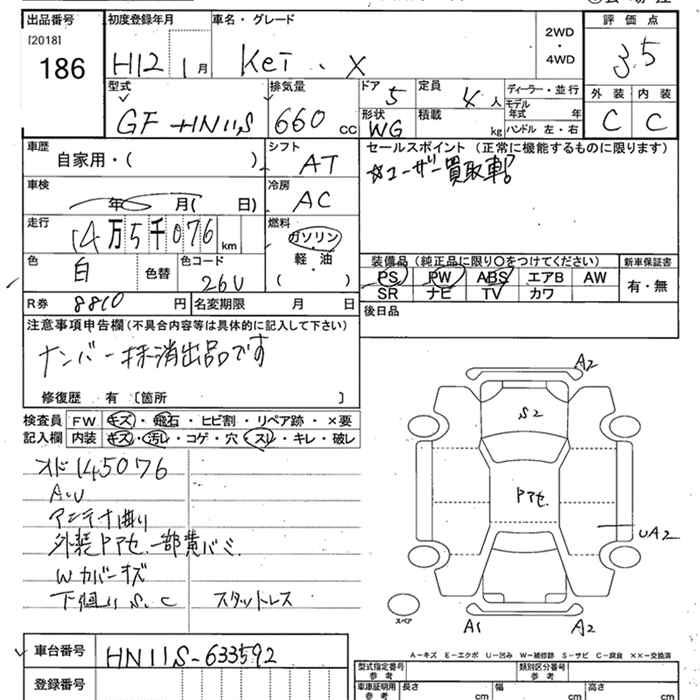 出品番号 初度登録年月 車名・グレード 2WD・4WD 評価点
[2018]
186 H12 1月 Kei . X 3.5
型式 排気量 ドア 5 定員 4人 ディーラー・並行 外装 内装
GF-HN11S 660cc 形状 WG 積載 kg モデル年式 年 C C
ハンドル 左・右
車歴 シフト セールスポイント (正常に機能するものに限ります)
自家用・( ) AT ☆ユーザー買取車!
車検 冷房
年 月( 日) AC
走行 燃料
14万5千076km ガソリン
軽油
( )
色 色替 色コード
白 26U
装備品 (純正品に限り○をつけてください) 新車保証書
PS PW ABS エアB AW 有・無
SR ナビ TV カワ
R券 8810円 名変期限 月 日 後日品
注意事項申告欄 (不具合内容等は具体的に記入して下さい)
ナンバー抹消出品です
修復歴 有 [箇所 ]
検査員記入欄 FW キズ・飛石・ヒビ割・リペア跡・×要
内装 キズ・汚レ・コゲ・穴・スレ・キレ・破レ
メド 145076
A.U
アンテナ曲り
外装Pアセ.一部黄バミ
Wカバーキズ
下廻りS.C スタットレス
A2
S2
Pアセ.
UA2
スペア
A1 A2
A-キズ E-エクボ U-凹み W-補修跡 S-サビ C-腐食 ××-交換済
車台番号 HN11S-633592
登録番号
型式指定番号 参考 類別区分番号 参考
車庫証明用 参考 長さ cm 幅 cm 高さ cm